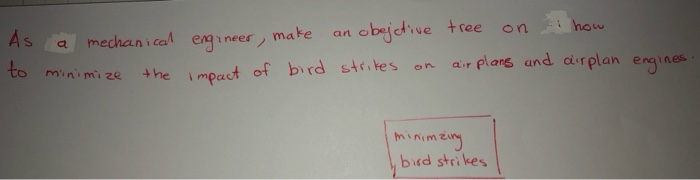 As a mechanical engineer, make an obejctive tree on how
to minimize the impact of bird strikes on airplans and airplan engines.
minimzing
bird strikes